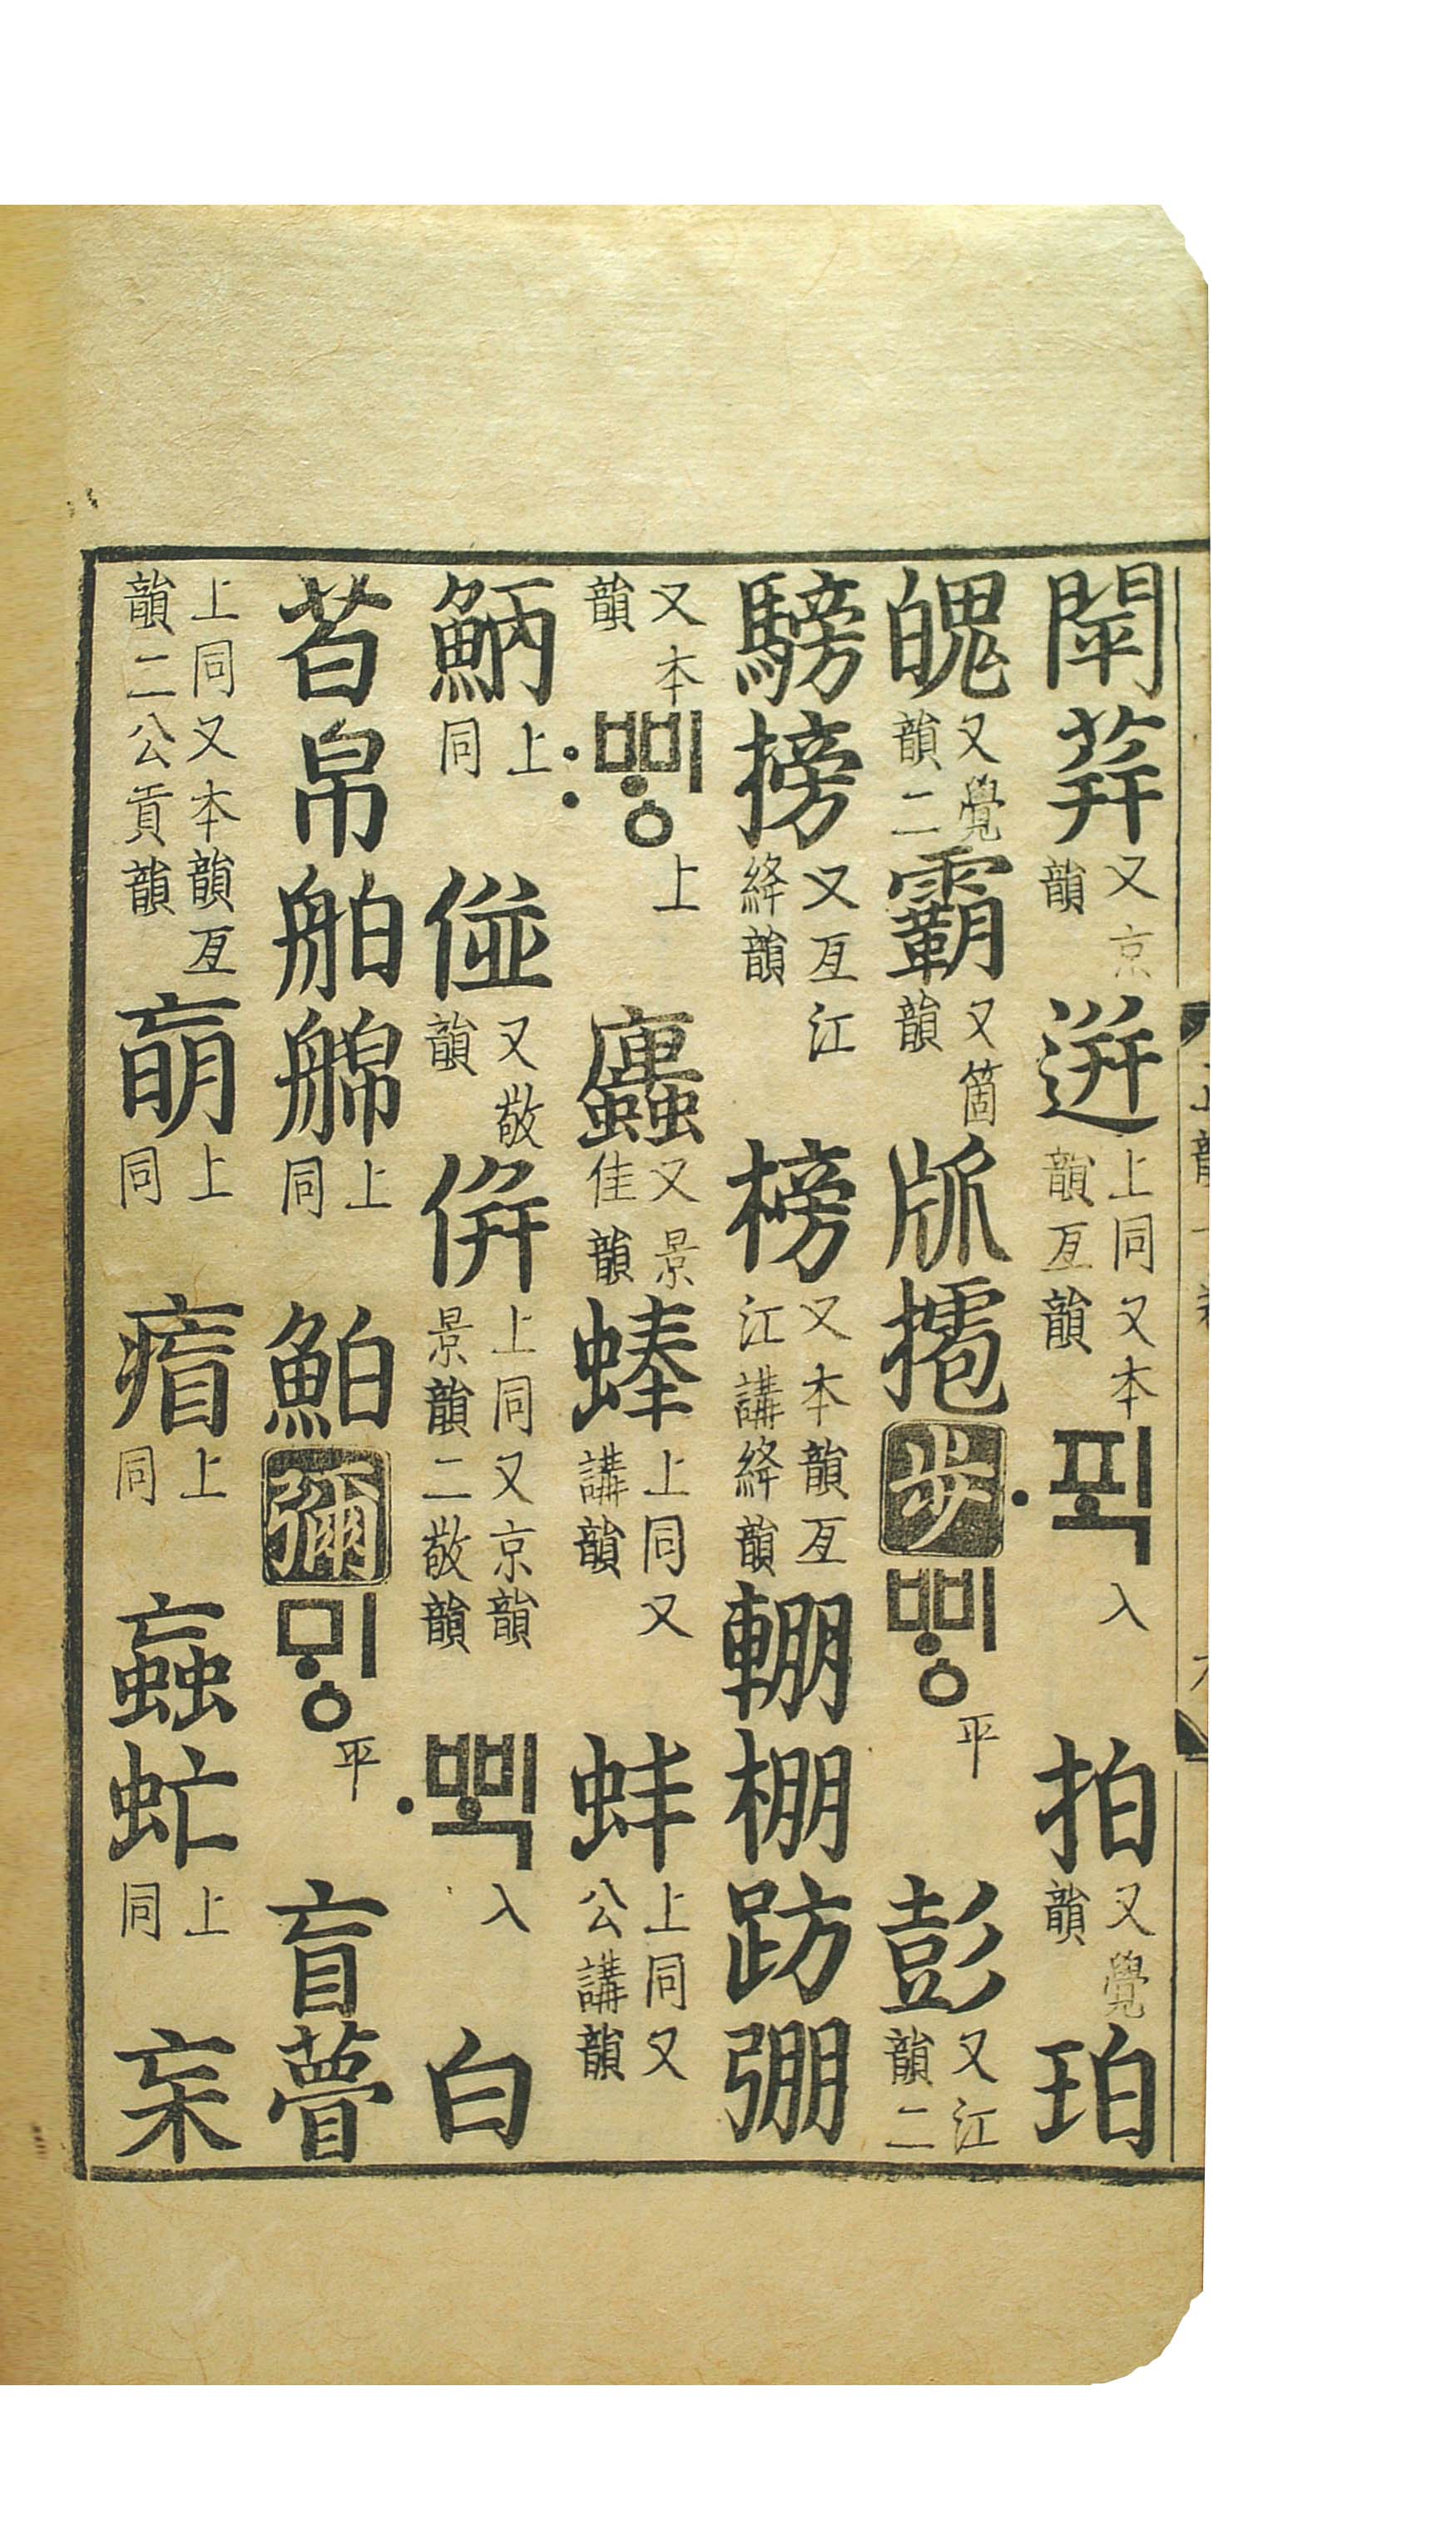 閛荓又京韻迸上同又本韻亙韻〮ᄑᆡᆨ入拍又覺韻珀
魄又覺韻二霸又箇韻步ᄈᆡᇰ平彭又江韻二
騯搒又亙江絳韻榜又本韻亙江講絳韻輣棚趽弸
又本韻〯ᄈᆡᇰ上蠯又景佳韻蜯上同又講韻蚌上同又公講韻
䱇上同又敬韻併上同又京韻景韻二敬韻〮ᄈᆡᆨ入白
苩帛舶上同鮊彌ᄆᆡᇰ平盲瞢
上同又本韻亙韻二公貢韻上同上同蝱虻上同杗